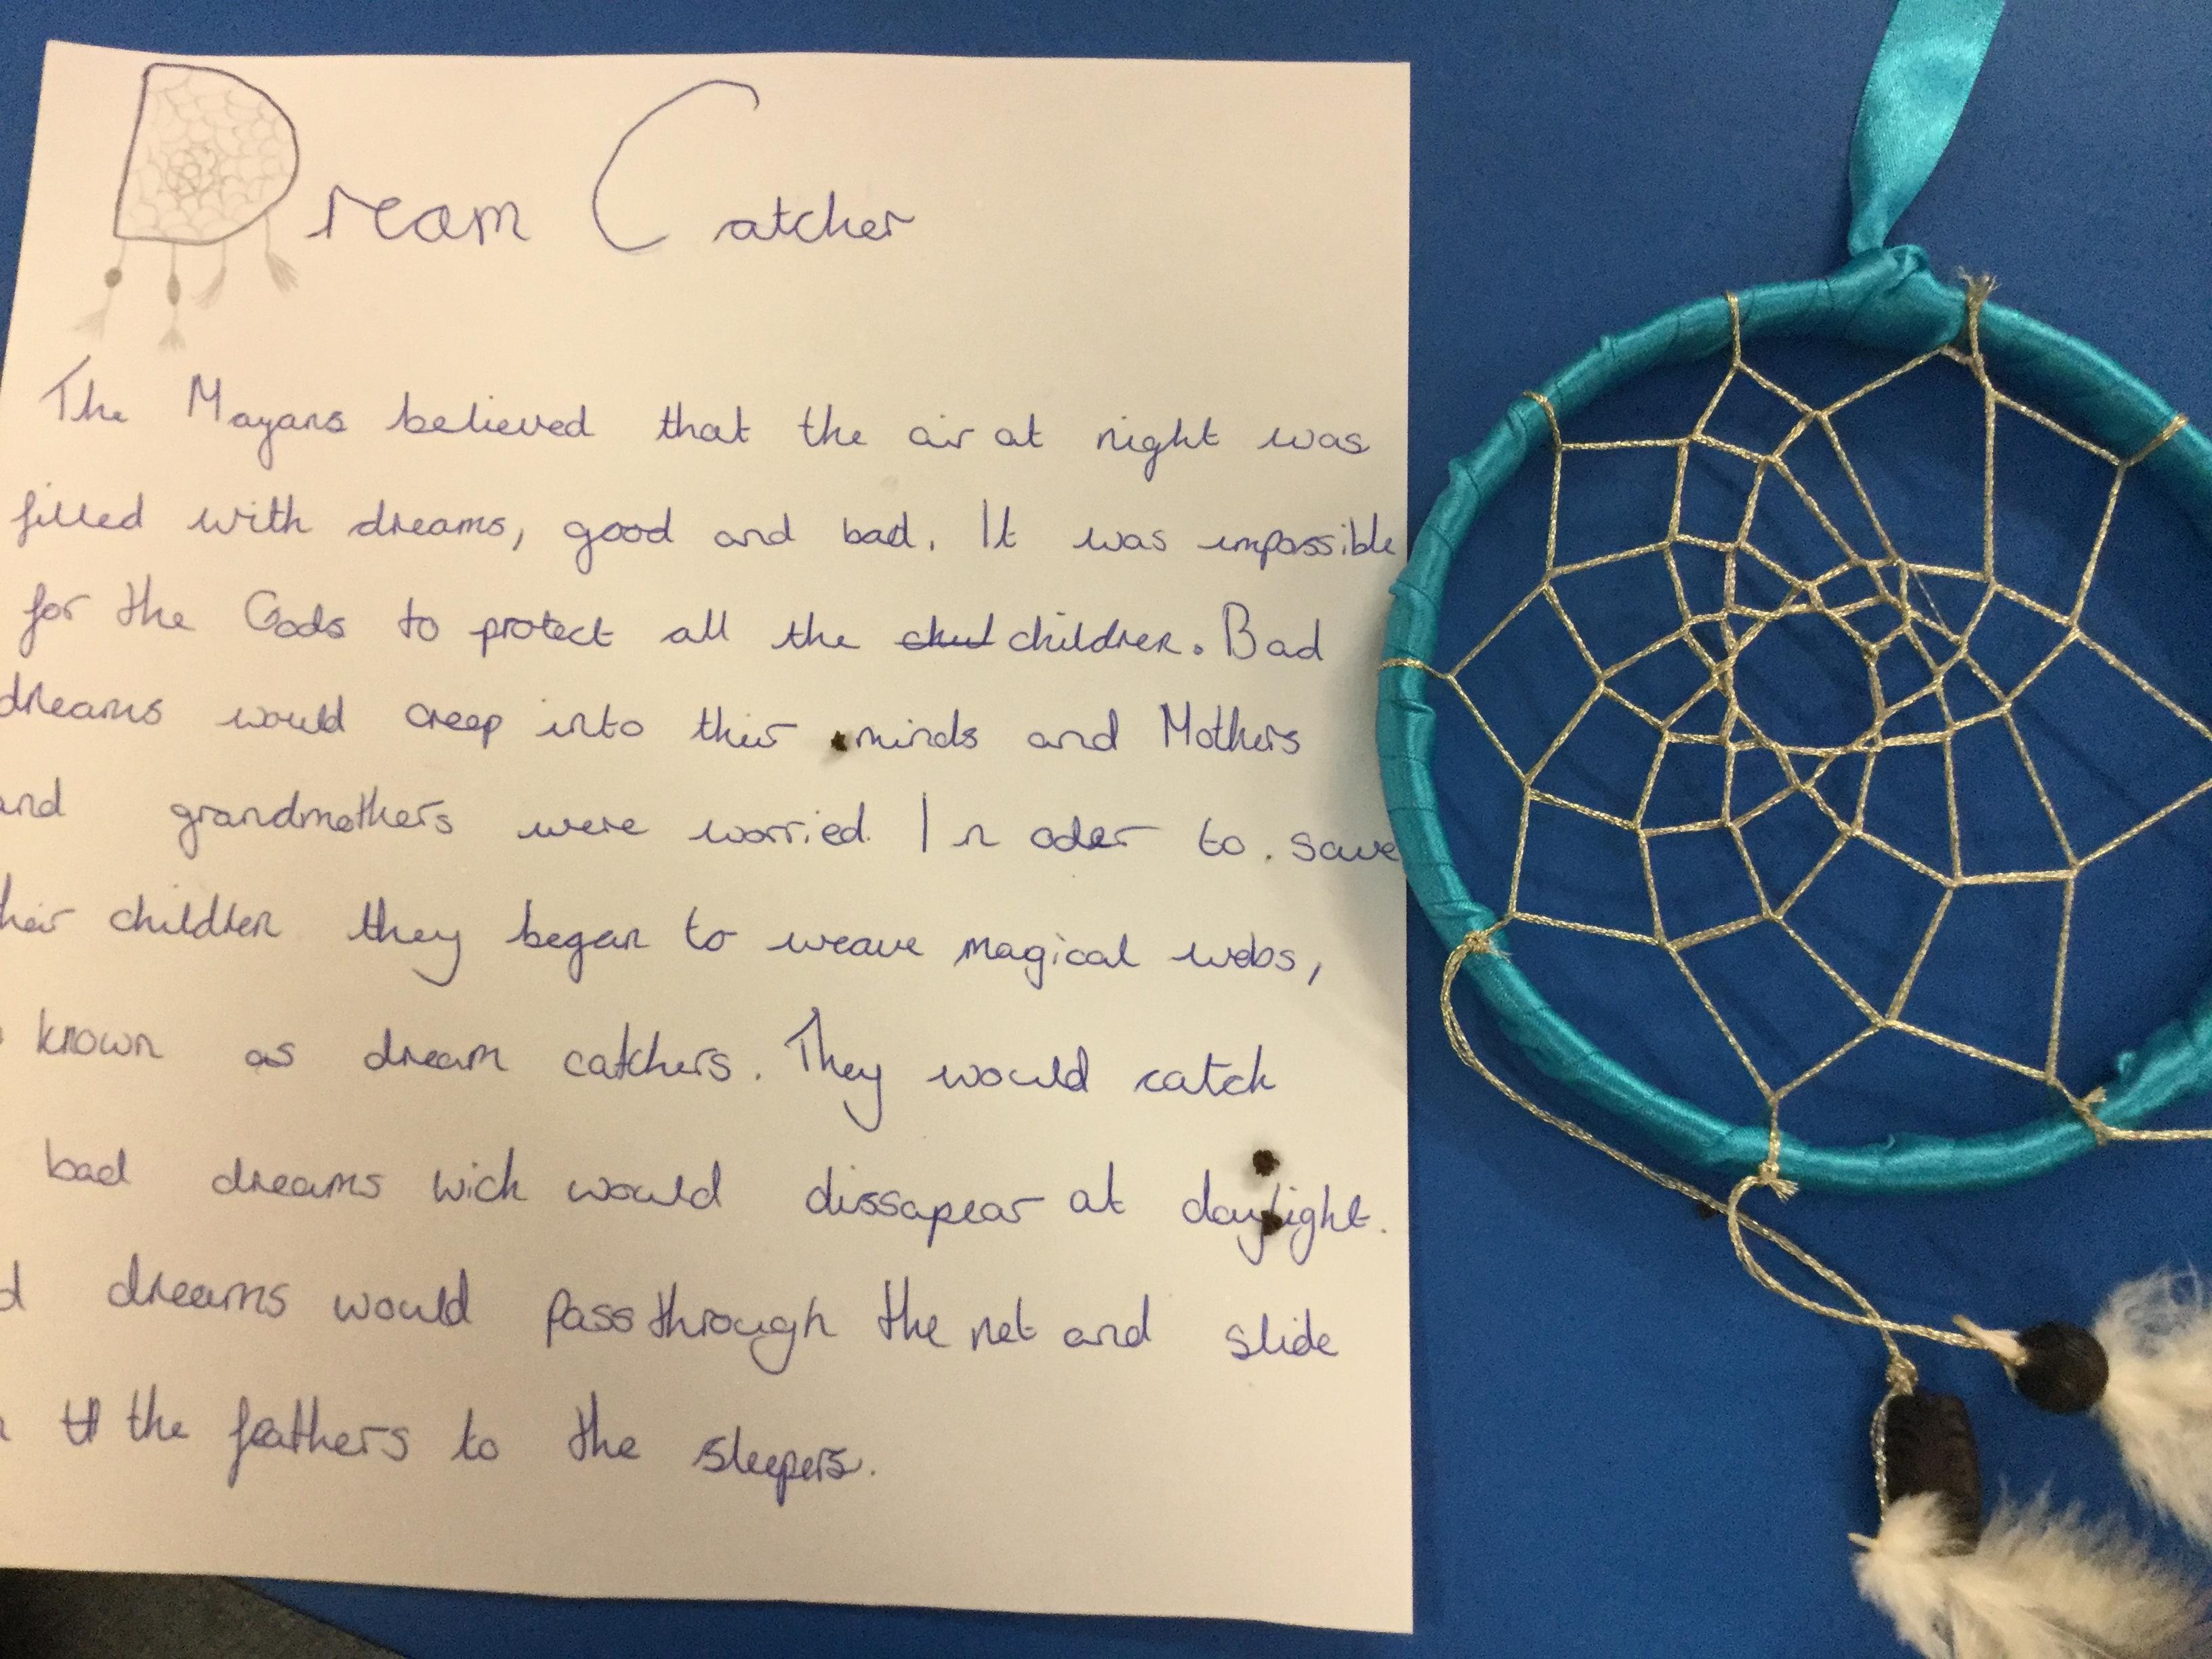 Dream Catcher
The Mayans believed that the air at night was
filled with dreams, good and bad. It was impossible
for the Gods to protect all the chul children. Bad
dreams would creep into thir minds and Mothers
and grandmothers were worried. In oder to save
their children they began to weave magical webs,
known as dream catchers. They would catch
bad dreams wich would dissapear at daylight.
dreams would pass through the net and slide
the feathers to the sleepers.